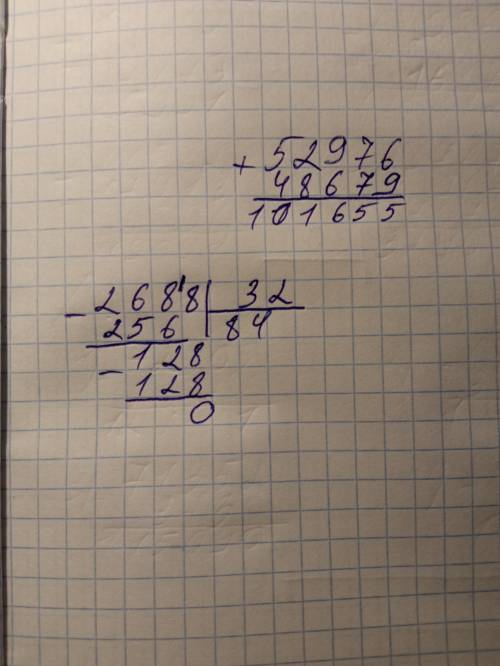 + 52976
48679
101655
- 268'8 | 32
256 | 84
- 128
128
0